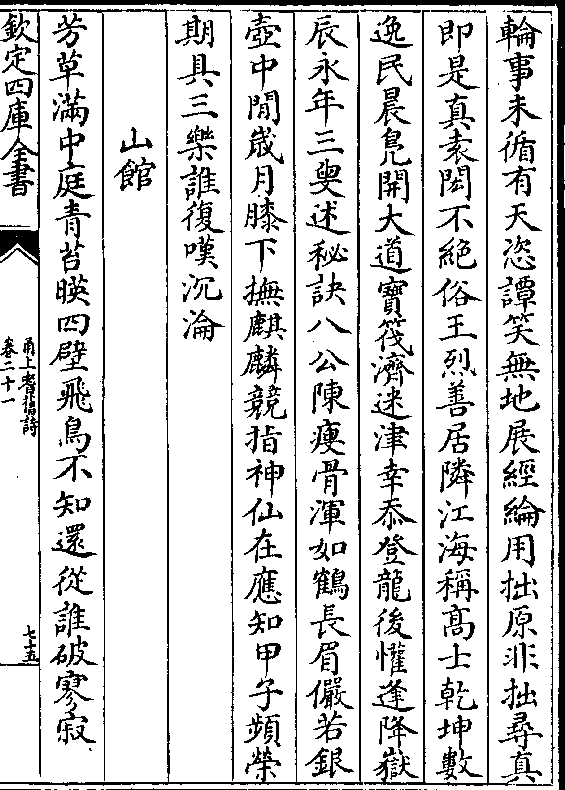 輪事未循有天恣譚笑無地展經綸用拙原非拙尋真
即是真袁閎不絶俗王烈善居隣江海稱髙士乾坤數
逸民晨鳬開大道寶筏濟迷津幸忝登龍後懽逢降嶽
辰永年三叟述秘訣八公陳瘦骨渾如鶴長眉儼若銀
壺中閒歲月膝下撫麒麟競指神仙在應知甲子頻榮
期具三樂誰復嘆沉淪
山館
芳草滿中庭青苔暎四壁飛鳥不知還從誰破寥寂
欽定四庫全書
甬上耆舊詩
卷二十一
七十五